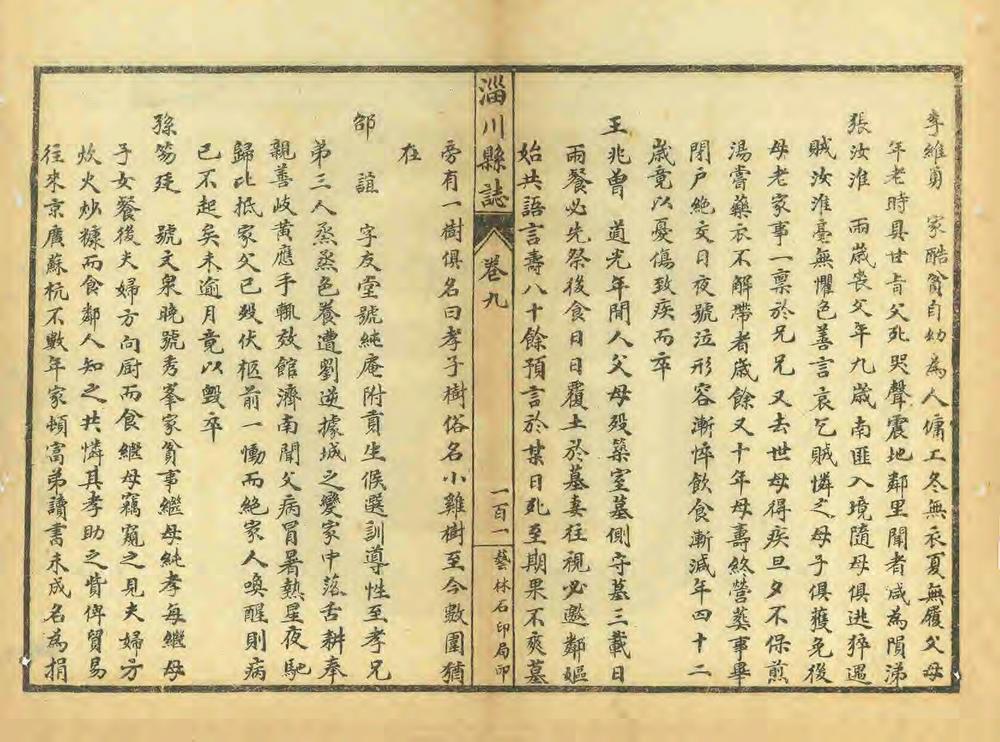 李維勇　家酷貧自幼為人傭工冬無衣夏無履父母
年老時具甘旨父死哭聲震地鄰里聞者咸為隕涕
張汝淮　兩歲喪父年九歲南匪入境隨母俱逃猝遇
賊汝淮毫無懼色善言哀乞賊憐之母子俱獲免後
母老家事一禀於兄兄又去世母得疾旦夕不保煎
湯嘗藥衣不解帶者歲餘又十年母壽終營葬事畢
閉戶絕交日夜號泣形容漸悴飲食漸減年四十二
歲竟以憂傷致疾而卒
王兆曽　道光年間人父母歿築室墓側守墓三載日
兩餐必先祭後食日日覆土於墓妻往視必邀鄰嫗
始共語言壽八十餘預言於某日死至期果不爽墓
淄川縣誌
卷九
一百一
藝林石印局印
旁有一樹俱名曰孝子樹俗名小雞樹至今數圍猶
在
邵　誼　字友堂號純庵附貢生候選訓導性至孝兄
弟三人烝烝色養遭劉逆據城之變家中落舌耕奉
親善岐黄應手輒效館濟南聞父病冒暑熱星夜馳
歸比抵家父已歿伏柩前一慟而絕家人喚醒則病
已不起矣未逾月竟以毀卒
孫笏廷　號文泉晚號秀峯家貧事繼母純孝每繼母
子女餐後夫婦方向厨而食繼母竊窺之見夫婦方
炊火炒糠而食鄰人知之共憐其孝助之貲俾貿易
往來京廣蘇杭不數年家頓富弟讀書未成名為捐